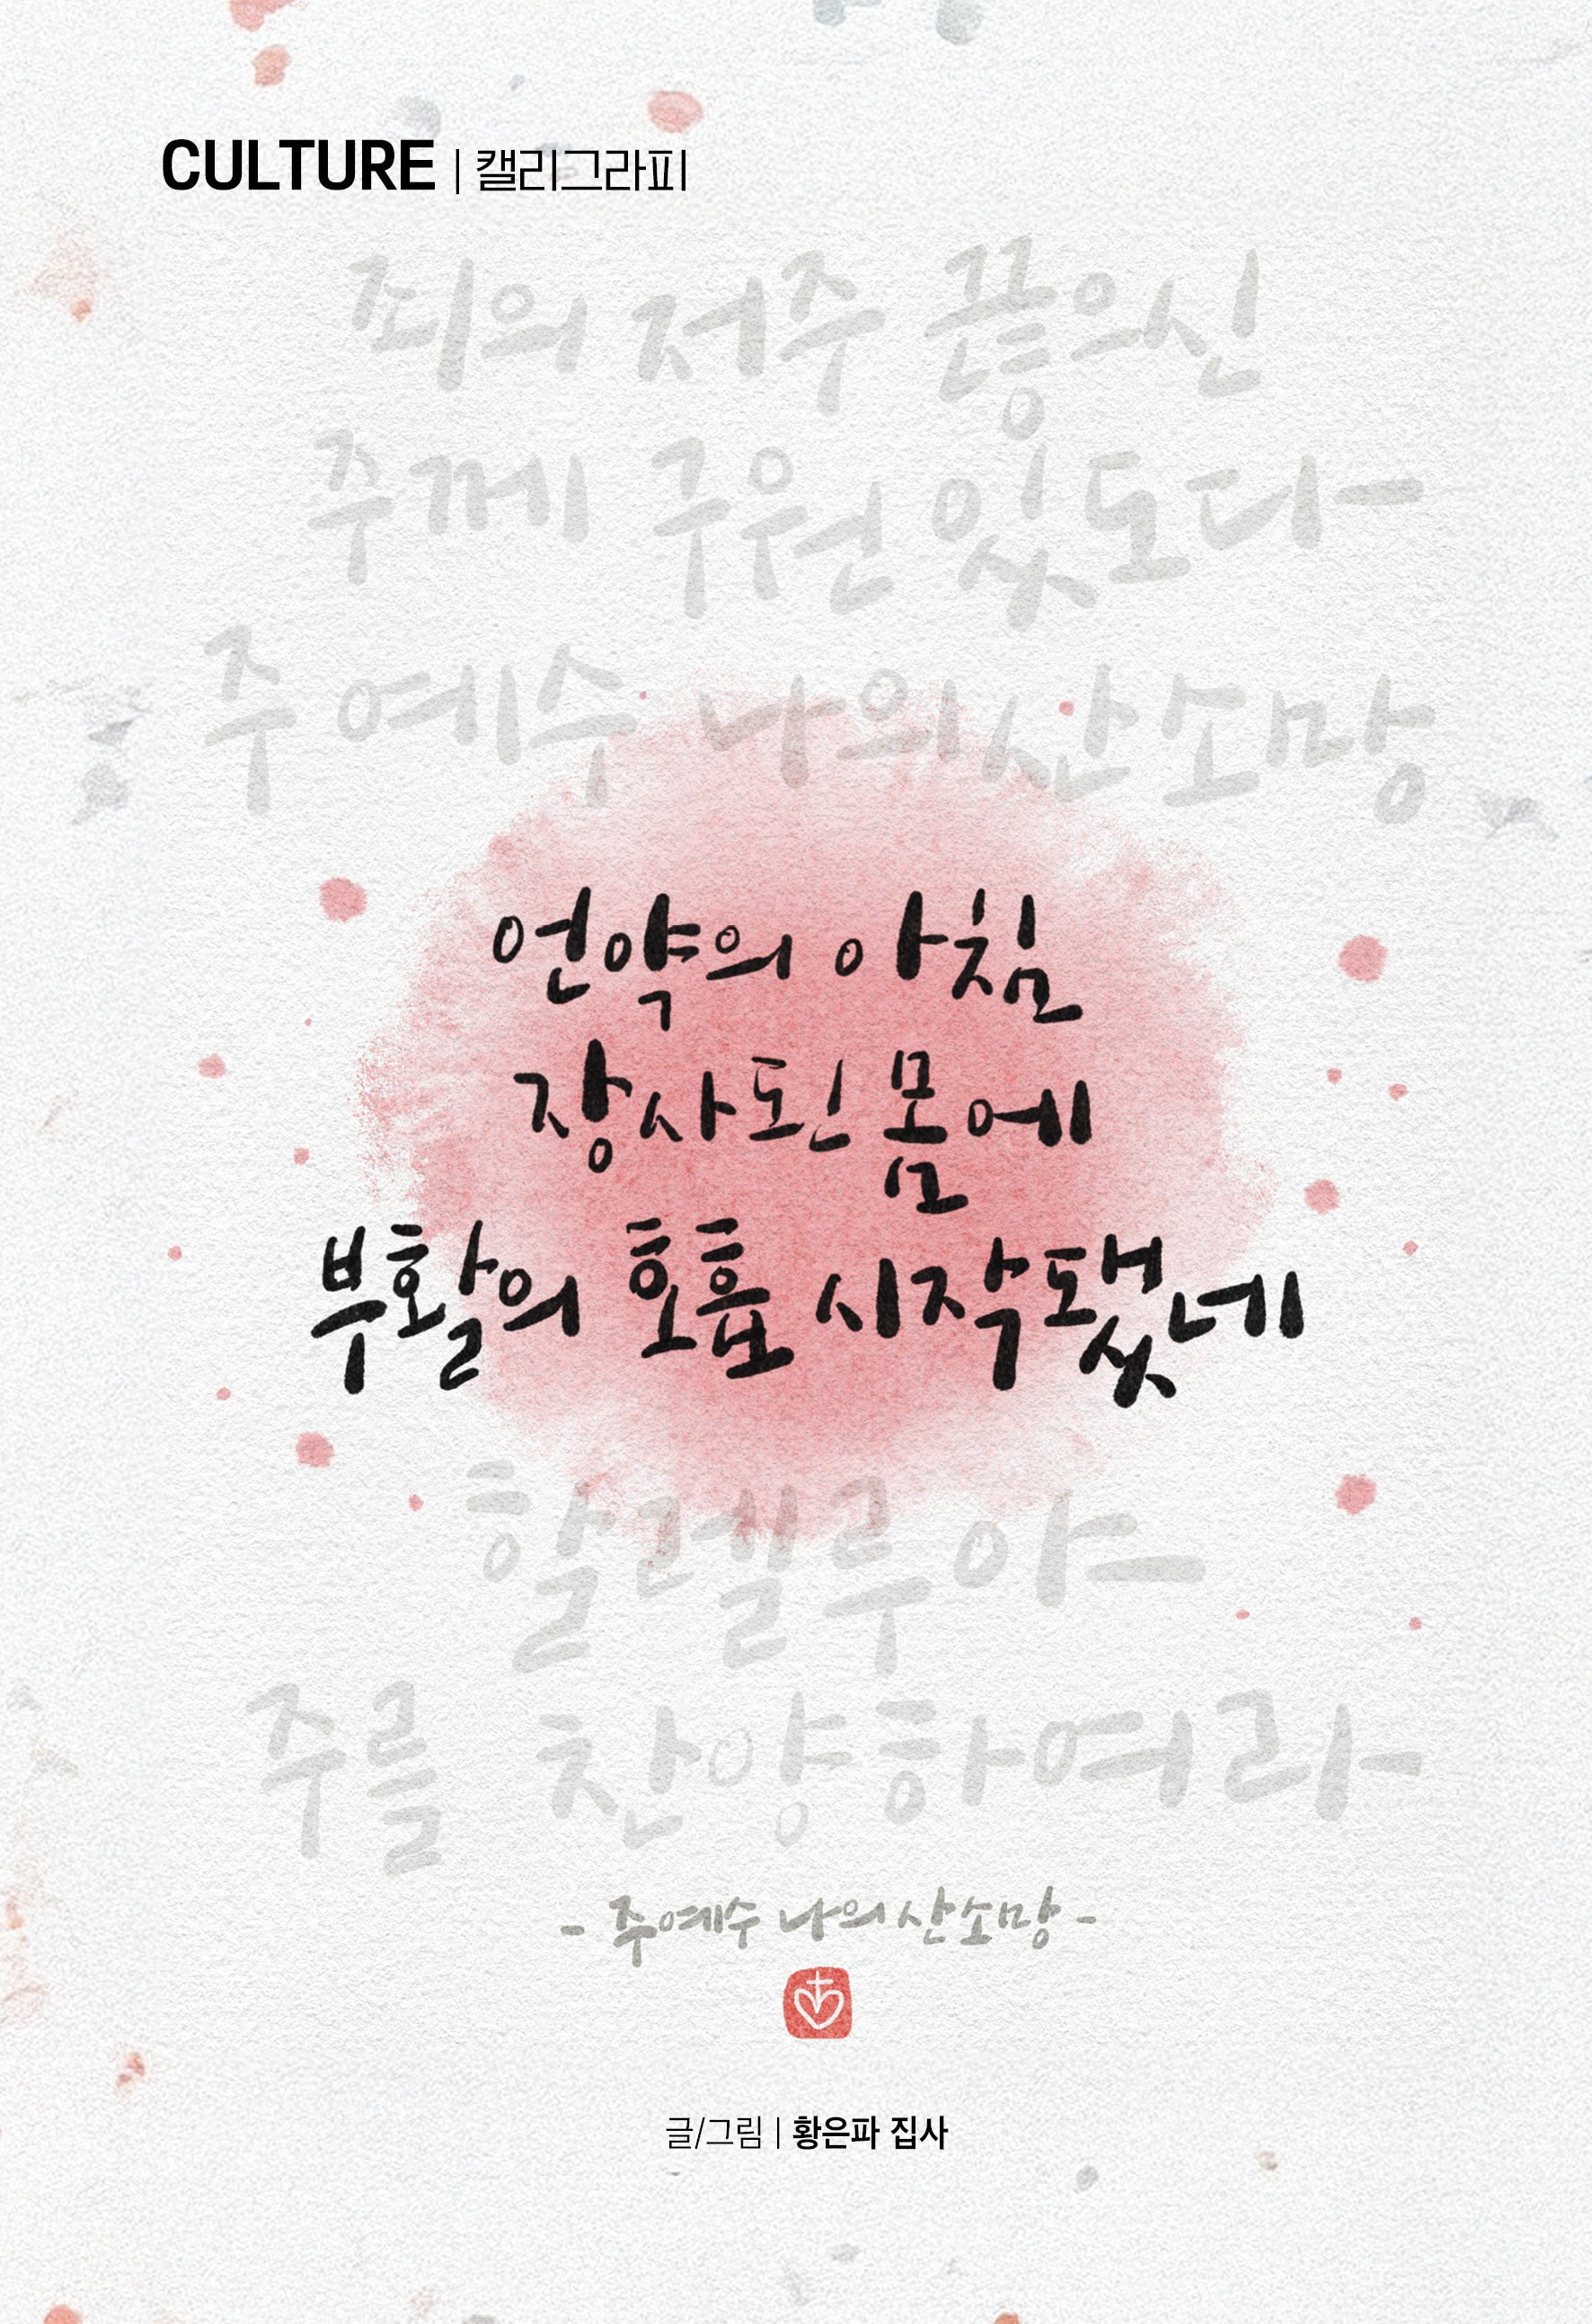 CULTURE | 캘리그라피
죄의 저주 끝으신
주께 구원 있도다
주 예수 나의 산 소망
언약의 아침
장사된 몸에
부활의 호흡 시작됐네
할렐루야
주를 찬양하여라
- 주 예수 나의 산 소망 -
글/그림 | 황은파 집사